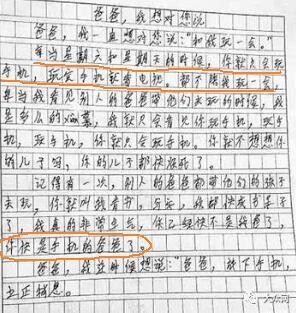 爸爸，我想对你说
爸爸，我一直想对你说："和我玩一会。"
每当星期天和星期天的时候，你就只会玩
手机，玩完手机就看电视，都不陪我玩一会，
每当我看见别人的爸爸带他们去玩的时候，我
是多么的，我只会看见你玩手机，玩手
机，玩手机，你就只会玩手机。你就不想想你
的儿子吗，你的儿子都快
记得有一次，别人的爸爸都带他们的孩子
去玩，你却叫我看书，
了，我真的非常生气，你已经快不是我爸了，
你快是手机的爸爸了。
爸爸，我这时候想说："爸爸，放下手机，
立正稍息。
大众网